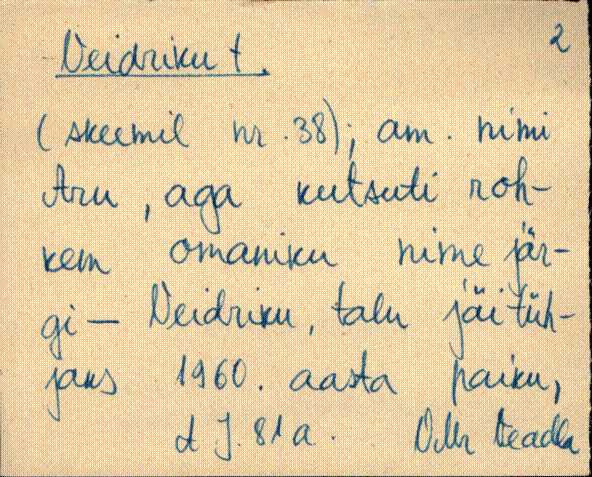 2
Veidriku t.
(skeemil nr. 38); am. nimi
Aru, aga kutsuti roh-
kem omaniku nime jär-
gi – Veidriku, talu jäi tüh-
jaks 1960. aasta paiku,
J. 81 a.